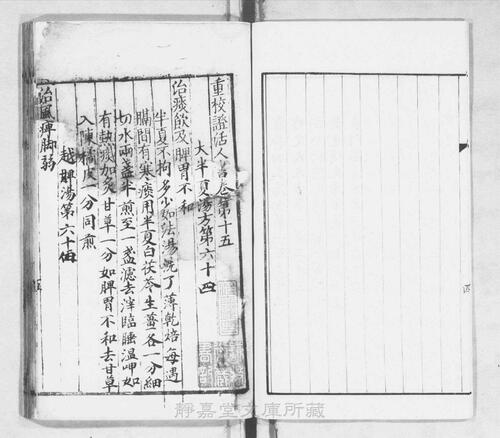 重校證活人書卷第十五
大半夏湯方第六十四
治痰飲及脾胃不和
半夏不拘多少如法湯洗了薄乾焙每遇
膈間有寒痰用半夏白茯苓生薑各一分細
切水兩盞半煎至一盞濾去滓臨臥溫呷如
有熱痰加炙甘草一分如脾胃不和去甘草
入陳橘皮一分同煎
越脾湯第六十五
治風痺脚弱
靜嘉堂文庫所藏